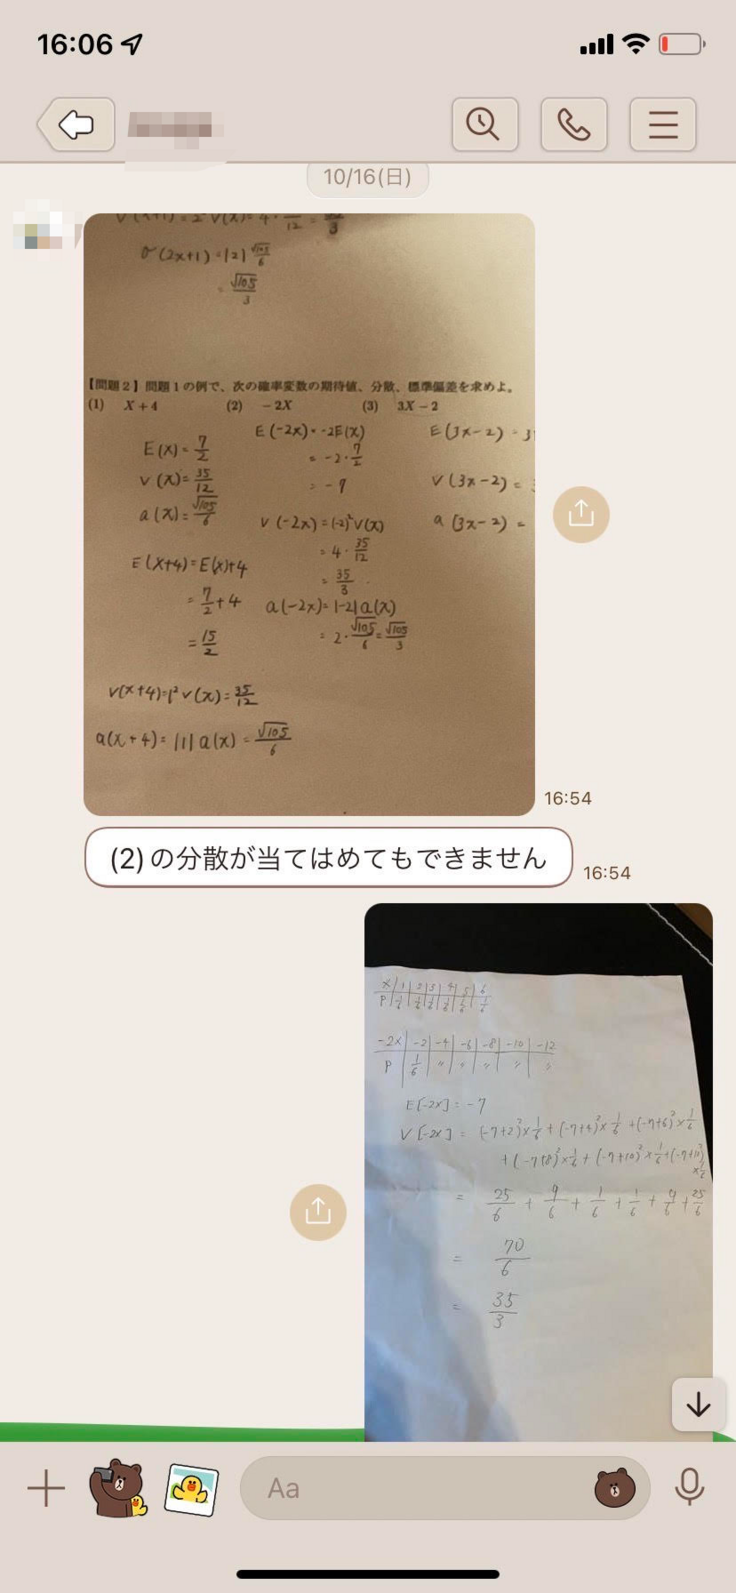 16:06
10/16(日)
σ(2x+1) = |2| √105/6
= √105/3
【問題2】問題1の例で、次の確率変数の期待値、分散、標準偏差を求めよ。
(1) X+4 (2) -2X (3) 3X-2
E(x) = 7/2
V(x) = 35/12
a(x) = √105/6
E(x+4) = E(x)+4
= 7/2 + 4
= 15/2
V(x+4) = 1² V(x) = 35/12
a(x+4) = |1| a(x) = √105/6
E(-2x) = -2E(x)
= -2・7/2
= -7
V(-2x) = (-2)²V(x)
= 4・35/12
= 35/3
a(-2x) = |-2| a(x)
= 2・√105/6 = √105/3
E(3x-2) = 3
V(3x-2) =
a(3x-2) =
16:54
(2)の分散が当てはめてもできません
16:54
X 1 2 3 4 5 6
P 1/6 1/6 1/6 1/6 1/6 1/6
-2X -2 -4 -6 -8 -10 -12
P 1/6 〃 〃 〃 〃 〃
E[-2X] = -7
V[-2X] = (-7+2)²×1/6 + (-7+4)²×1/6 + (-7+6)²×1/6
+ (-7+8)²×1/6 + (-7+10)²×1/6 + (-7+12)²×1/6
= 25/6 + 9/6 + 1/6 + 1/6 + 9/6 + 25/6
= 70/6
= 35/3
Aa